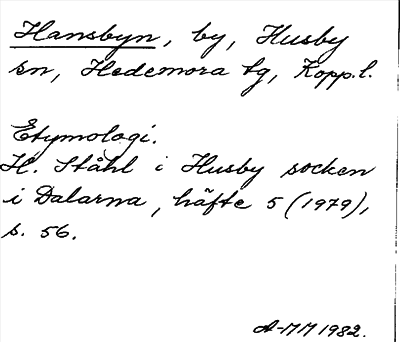 Hansbyn, by, Husby
sn, Hedemora tg, Kopp.l.
Etymologi.
H. Ståhl i Husby socken
i Dalarna, häfte 5 (1979),
s. 56.
A-MM 1982.